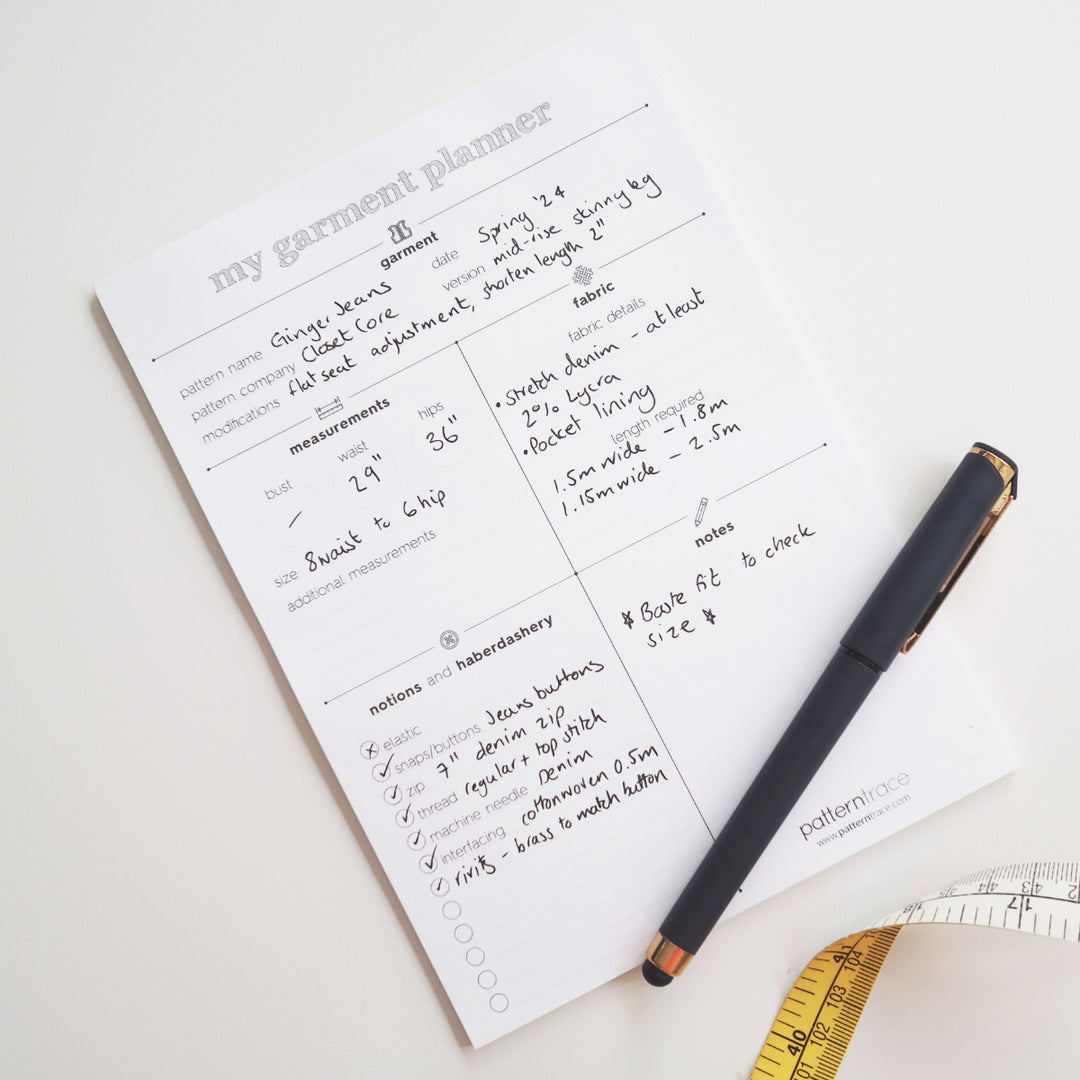 my garment planner
garment
pattern name Ginger Jeans date Spring '24
pattern company Closet Core version mid-rise skinny leg
modifications flat seat adjustment, shorten length 2"
measurements
bust waist hips
- 29" 36"
size 8 waist to 6 hip
additional measurements
fabric
fabric details
• Stretch denim - at least
2% Lycra
• Pocket lining
length required
1.5m wide - 1.8m
1.15m wide - 2.5m
notions and haberdashery
elastic
snaps/buttons Jeans buttons
zip 7" denim zip
thread regular + top stitch
machine needle Denim
interfacing cotton woven 0.5m
rivits - brass to match button
notes
* Baste fit to check
size *
patterntrace
www.patterntrace.com
42 43 44
17 18
41 104
103
40 102
101